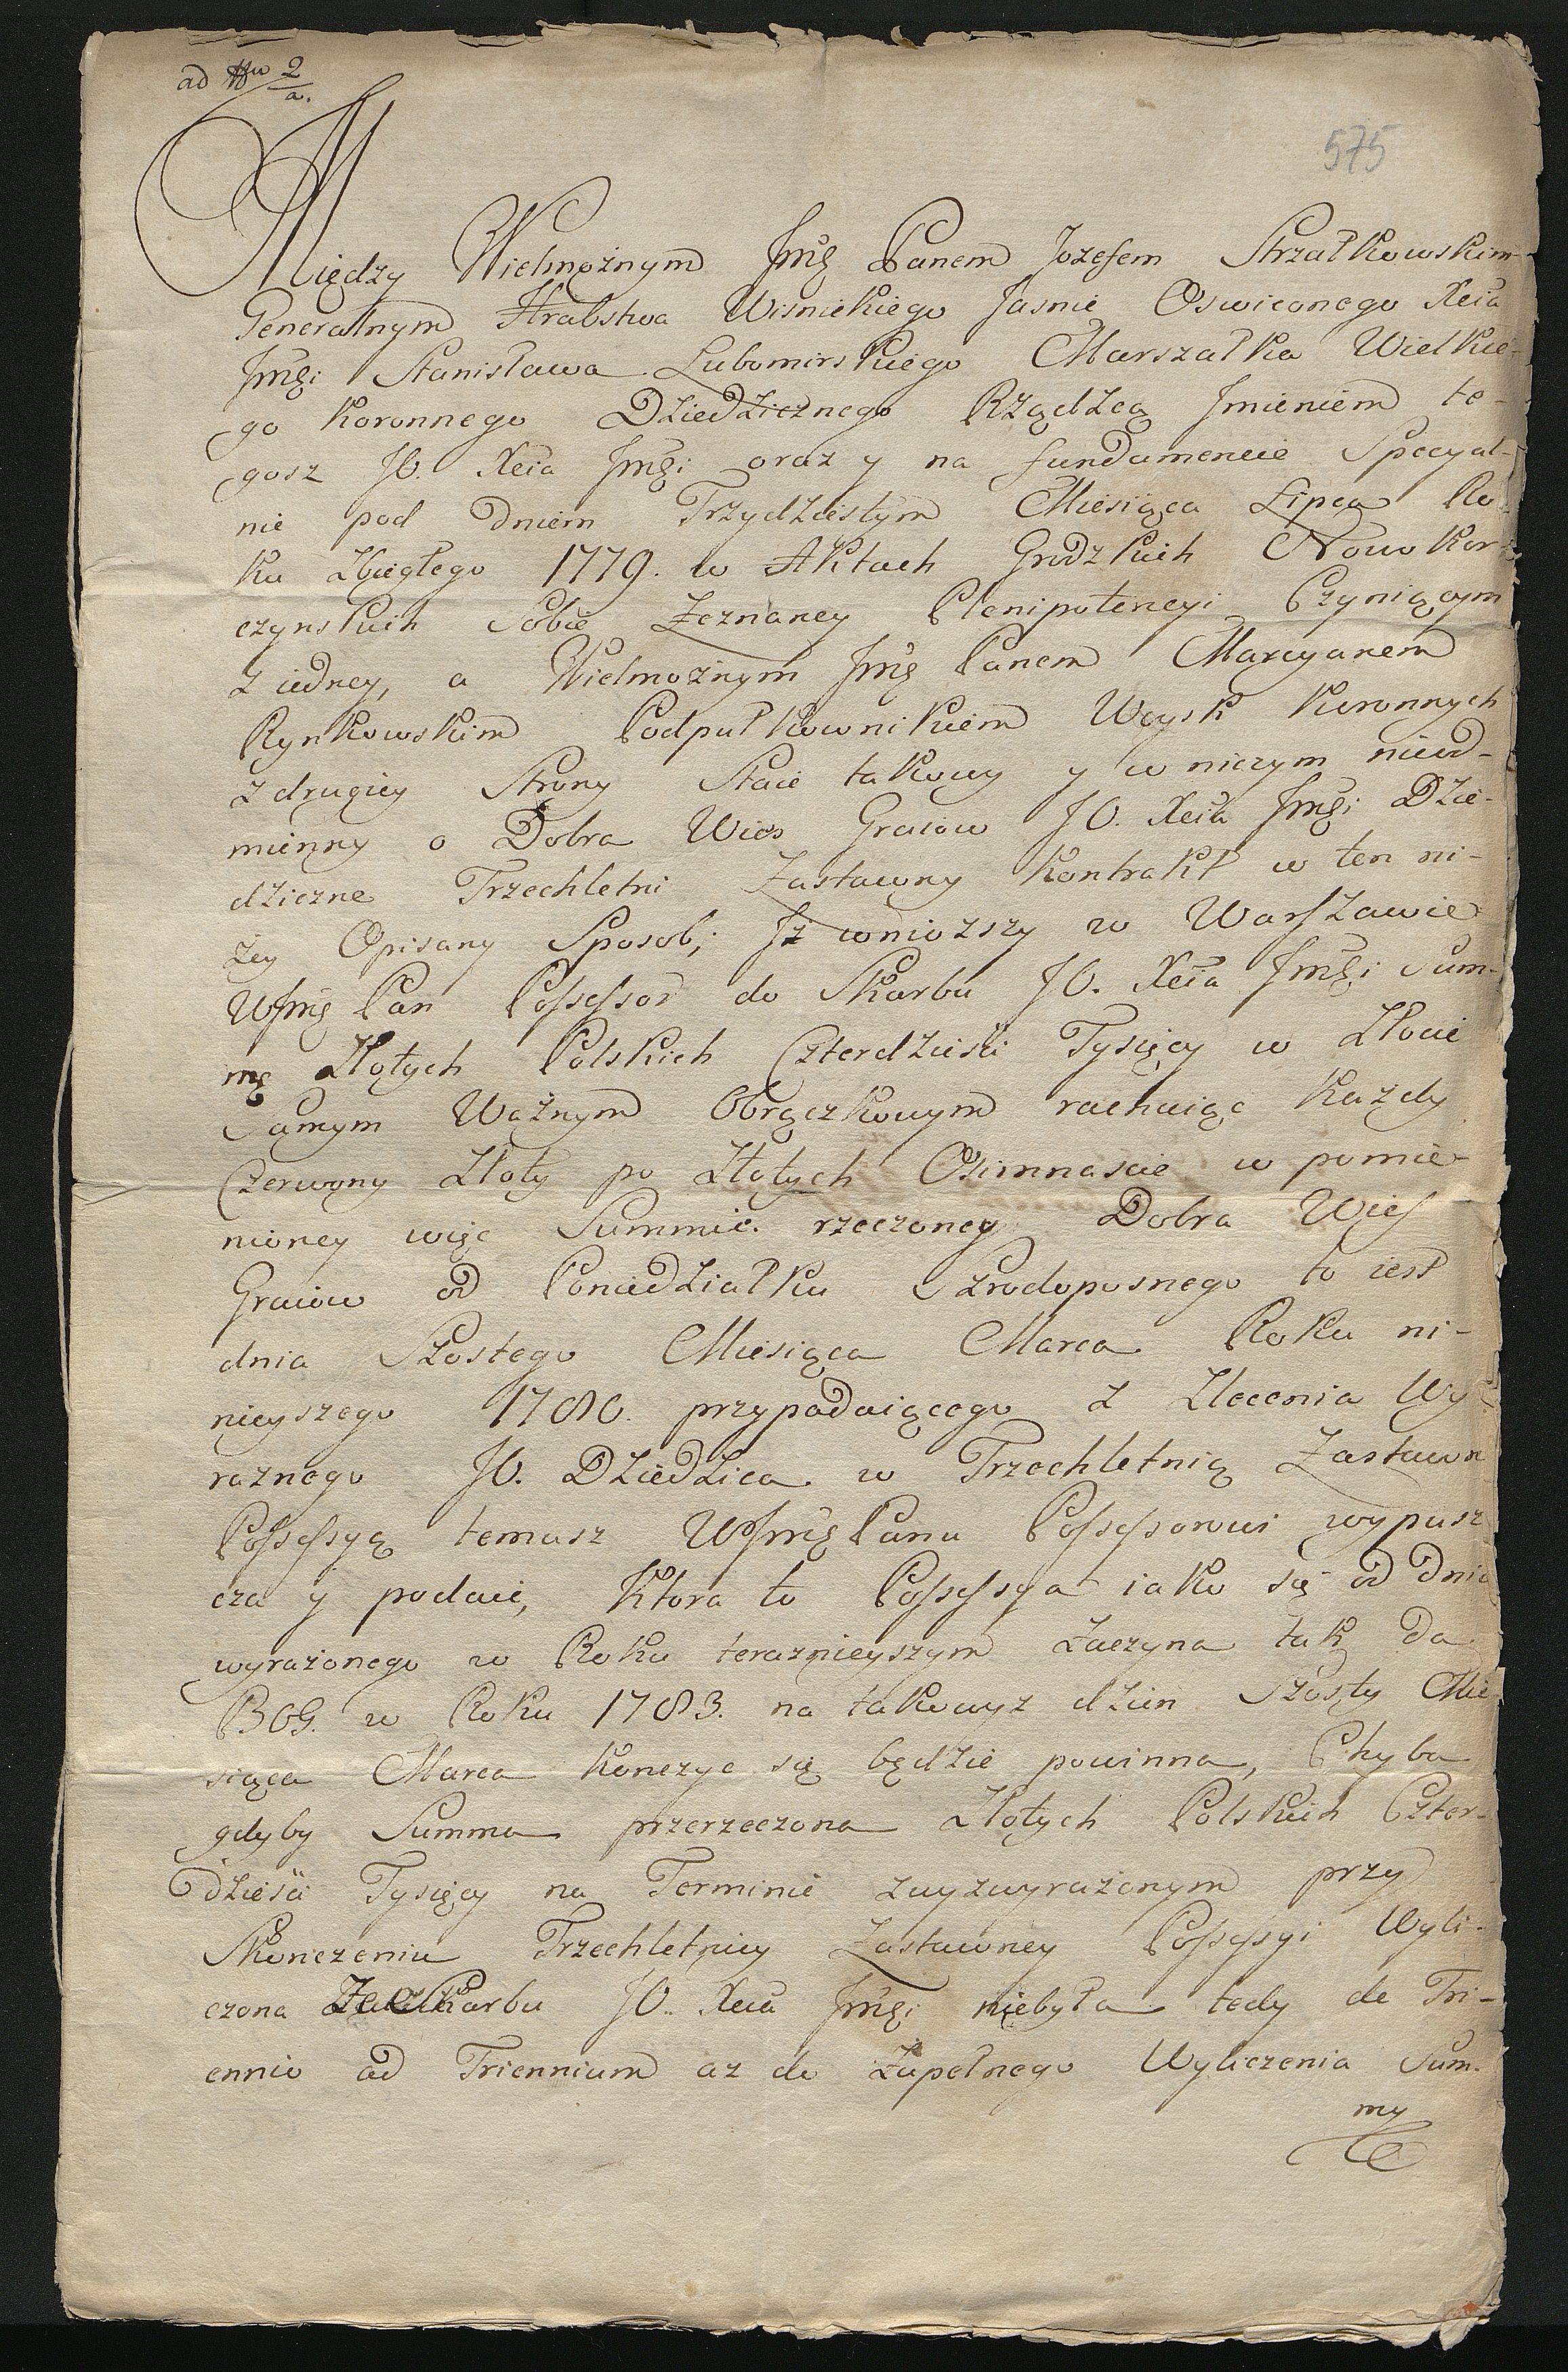 ad Nrũ 2/a.
575
Między Wielmożnym Jmć Panem Jozefem Strzałkowskim
Generalnym Hrabstwa Wisnickiego Jasnie Oswiconego Xcia
Jmći Stanisława Lubomirskiego Marszałka Wielkie-
go Koronnego Dziedzicznego Rządzcą Jmieniem te-
gosz JO. Xcia Jmći oraz y na fundamencie Specyal-
nie pod dniem Trzydziestym Miesiąca Lipca Ro-
ku Zbiegłego 1779. w Aktach Grodzkich Nowokor-
czynskich Sobie Zeznaney Plenipotencyi Czyniącym
z iedney, a Wielmożnym Jmć Panem Marcyanem
Rynkowskim Podpułkownikiem Woysk Koronnych
z drugiey Strony Staie takowy y w niczym nieod-
mienny o Dobra Wies Graiow JO. Xcia Jmći Dzie-
dziczne Trzechletni Zastawny Kontrakt w ten ni-
żey Opisany Sposob; Jż wniozszy w Warszawie
WJmć Pan Possessor do Skarbu JO. Xcia Jmći Sum-
mę Złotych Polskich Czterdziesci Tysięcy w Złocie
Samym Ważnym Obrączkowym rachuiąc Każdy
Czerwony Złoty po Złotych Osimnascie w pomie-
nioney więc Summie rzeczoney Dobra Wies
Graiow od Poniedziałku Szrodoposnego to iest
dnia Szostego Miesiąca Marca Roku ni-
nieyszego 1780. przypadaiącego z Zlecenia Wy-
raznego JO. Dziedzica w Trzechletnią Zastawn
Possessyą temusz WJmć Panu Possessorowi wypusz
cza y podaie, Ktora to Possessya iako się od dnia
wyrażonego w Roku teraznieyszym zaczyna tak da
BOG. w Roku 1783. na takowyz dzien Szosty Mie
siąca Marca Konczyc się będzie powinna, Chyba
gdyby Summa przerzeczona Złotych Polskich Czter-
dziesci Tysięcy na Terminie zwyzwyrażonym przy
Skonczeniu Trzechletniey Zastawney Possessyi Wyli-
czona Ze Skarbu JO. Xcia Jmći niebyła tedy de Tri-
ennio ad Triennium az do Zupełnego Wyliczenia Sum-
my